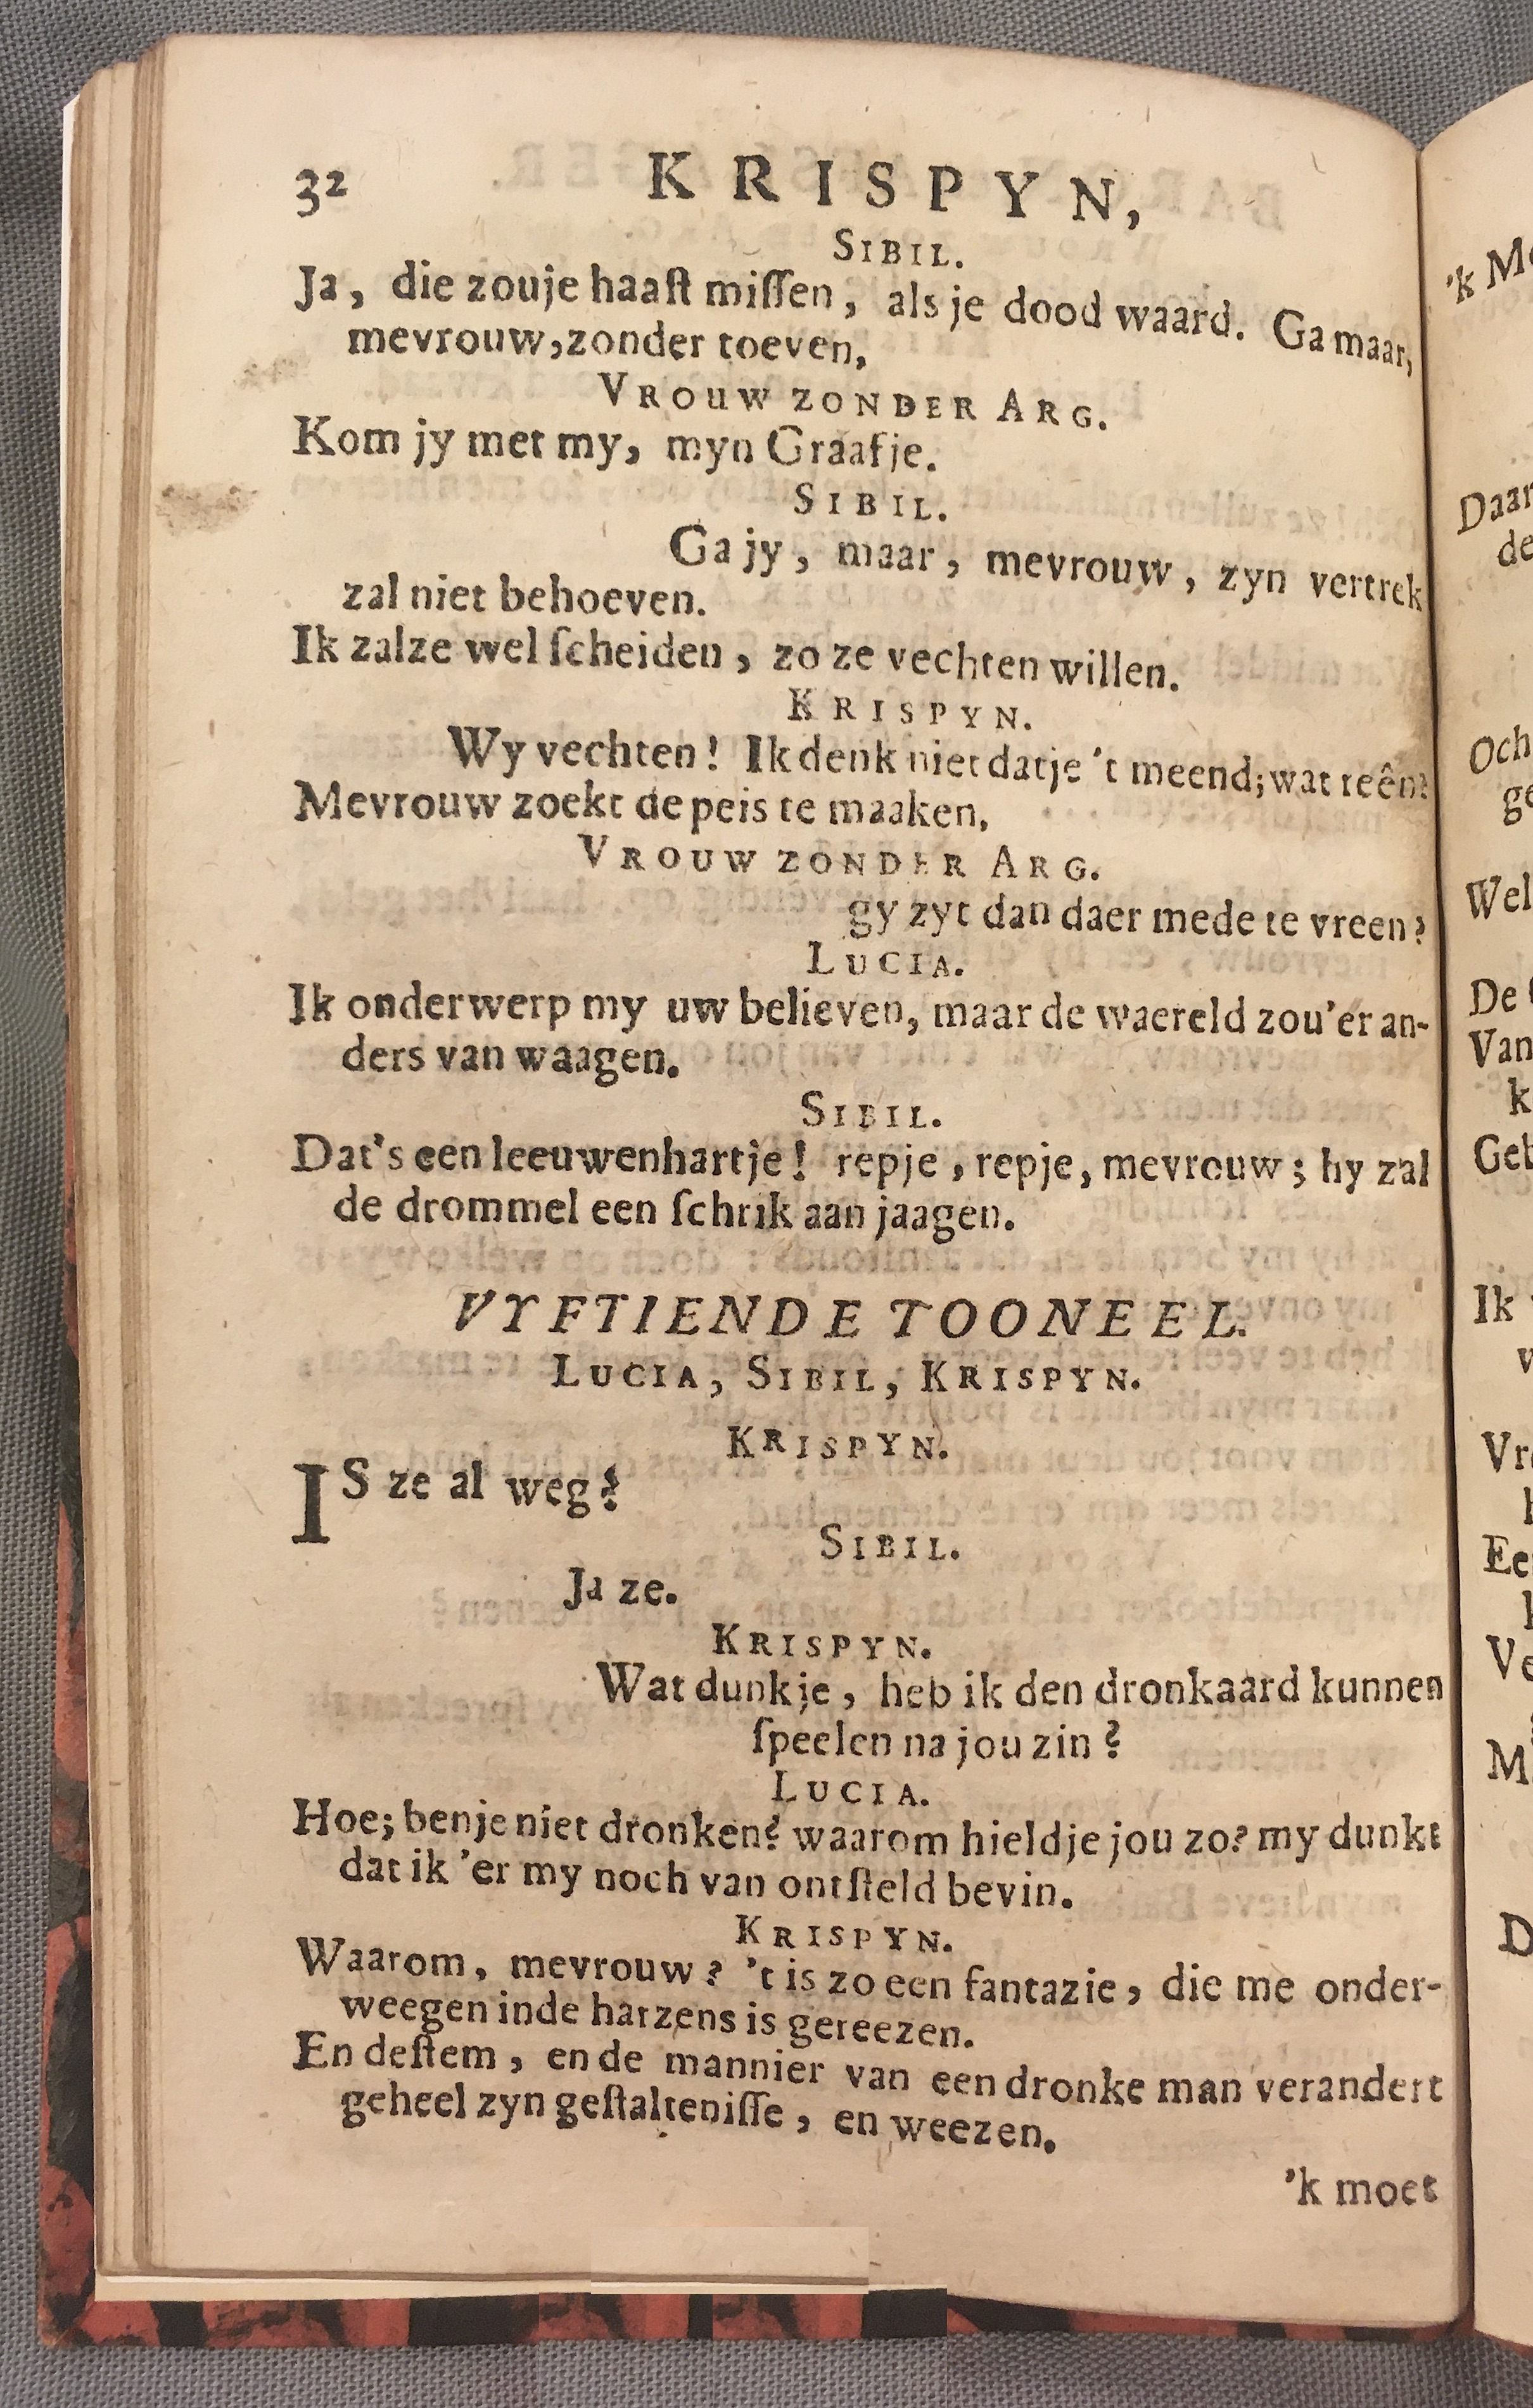 32 KRISPYN,
SIBIL.
Ja, die zouje haaſt miſſen, als je dood waard. Ga maar,
mevrouw, zonder toeven,
VROUW ZONDER ARG.
Kom jy met my, myn Graafje.
SIBIL.
Ga jy, maar, mevrouw, zyn vertrek
zal niet behoeven.
Ik zalze wel ſcheiden, zo ze vechten willen.
KRISPYN.
Wy vechten! Ik denk niet datje 't meend; wat reên?
Mevrouw zoekt de peis te maaken,
VROUW ZONDER ARG.
gy zyt dan daer mede te vreen?
LUCIA.
Ik onderwerp my uw believen, maar de waereld zou'er an-
ders van waagen.
SIBIL.
Dat's een leeuwenhartje! repje, repje, mevrouw; hy zal
de drommel een ſchrik aan jaagen.
VYFTIENDE TOONEEL.
LUCIA, SIBIL, KRISPYN.
KRISPYN.
IS ze al weg?
SIBIL.
Ja ze.
KRISPYN.
Wat dunkje, heb ik den dronkaard kunnen
ſpeelen na jou zin?
LUCIA.
Hoe; benje niet dronken? waarom hieldje jou zo? my dunkt
dat ik 'er my noch van ontſteld bevin.
KRISPYN.
Waarom, mevrouw? 't is zo een fantazie, die me onder-
weegen inde harzens is gereezen.
En deſtem, en de mannier van een dronke man verandert
geheel zyn geſtalteniſſe, en weezen.
'k moet